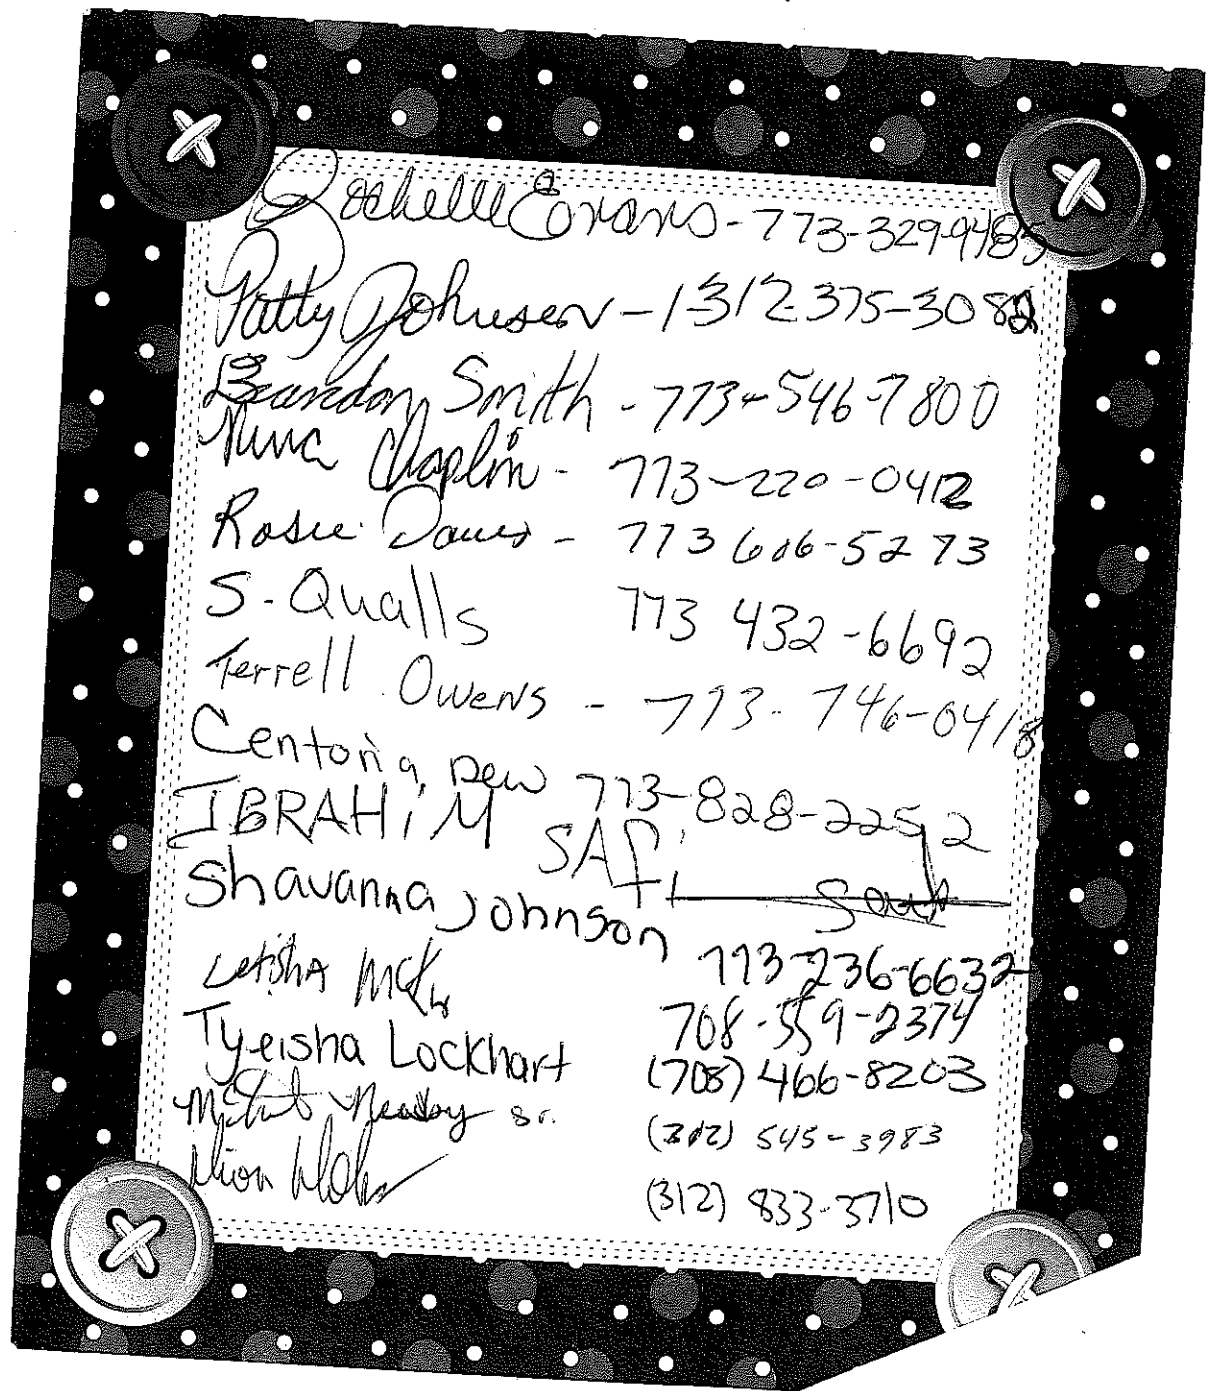 Rochelle Evans - 773-329-9485
Patty Johnson - 1-312-375-3082
Brandon Smith - 773-546-7800
Nina Chaplin - 773-220-0412
Rosie Davis - 773 606-5273
S. Qualls 773 432-6692
Terrell Owens - 773-746-0418
Centoria Dew 773-828-2252
IBRAHiM SAFi
Shavanna Johnson 773-236-6632
LatishA 708-559-2374
Tyeisha Lockhart (708) 466-8203
Sr. (312) 545-3983
(312) 833-3710